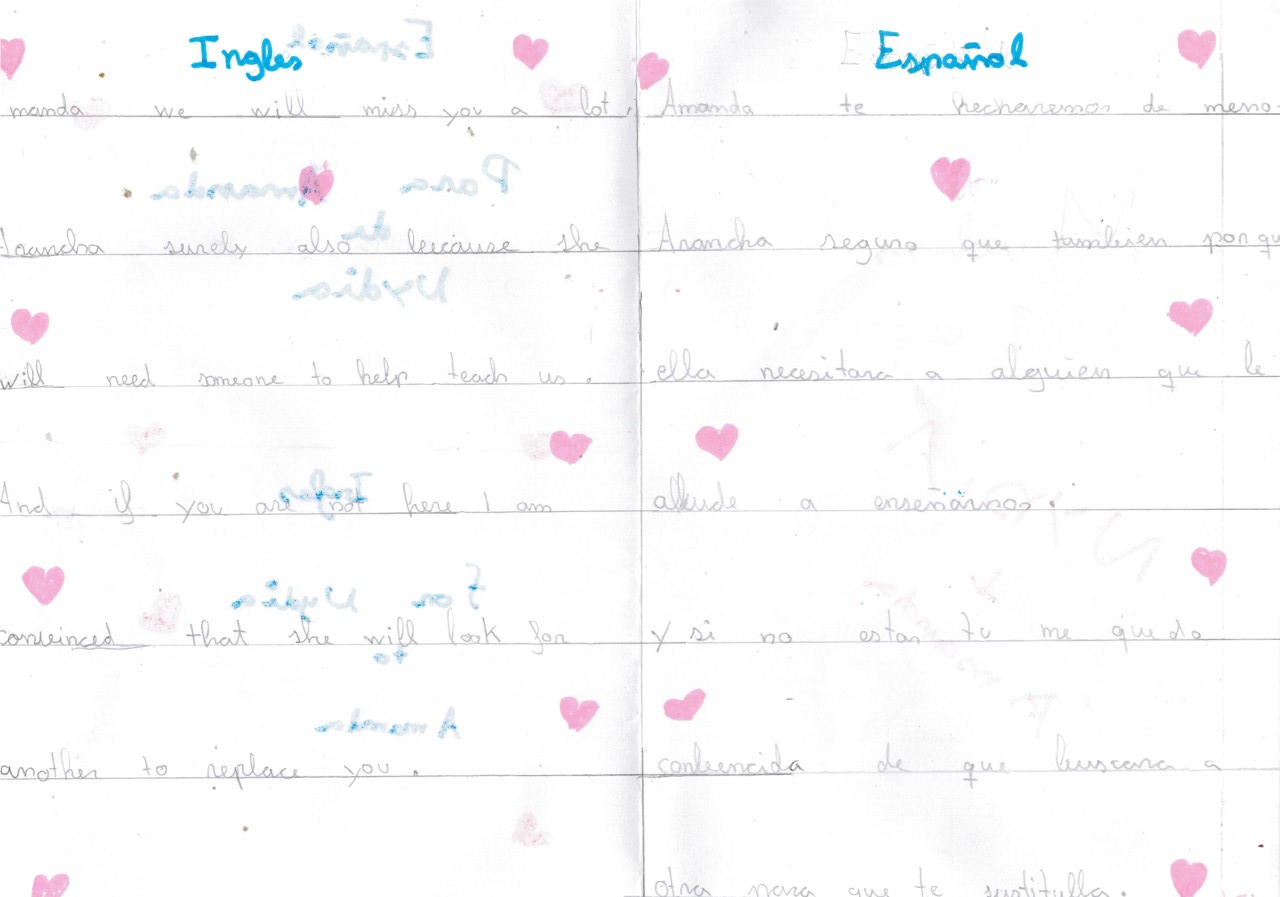 Ingles
manda we will miss you a lot,
Arancha surely also beicause she
will need someone to help teach us.
And if you are not here I am
conveinced that she will look for
another to replace you.
Español
Amanda te hecharemos de meno
Arancha seguro que tambien porqu
ella necesitara a alguien que le
allude a enseñarnos.
y si no estas tu me queda
conbencida de que buscara a
otra para que te sustitulla.
Español
Para Amanda
de
Nydia
Ingles
For Nydia
to
Amanda